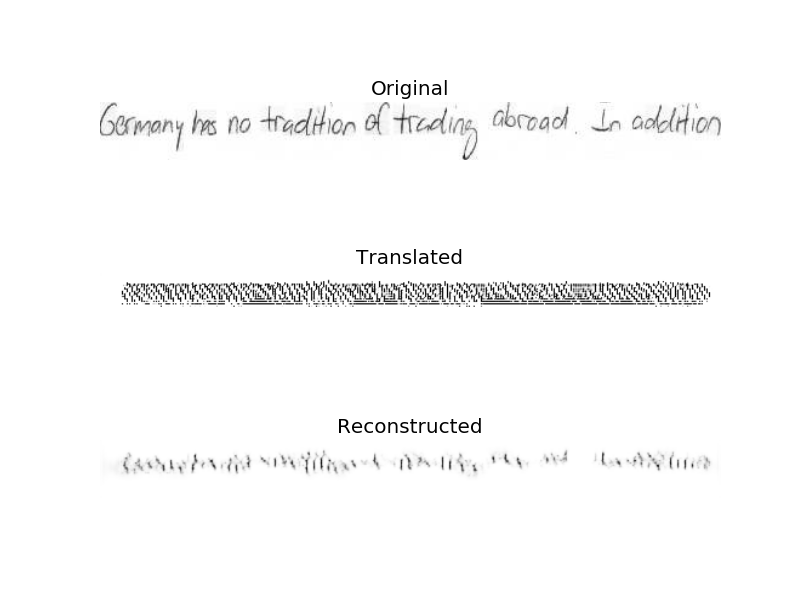 Original
Germany has no tradition of trading abroad. In addition
Translated
Reconstructed